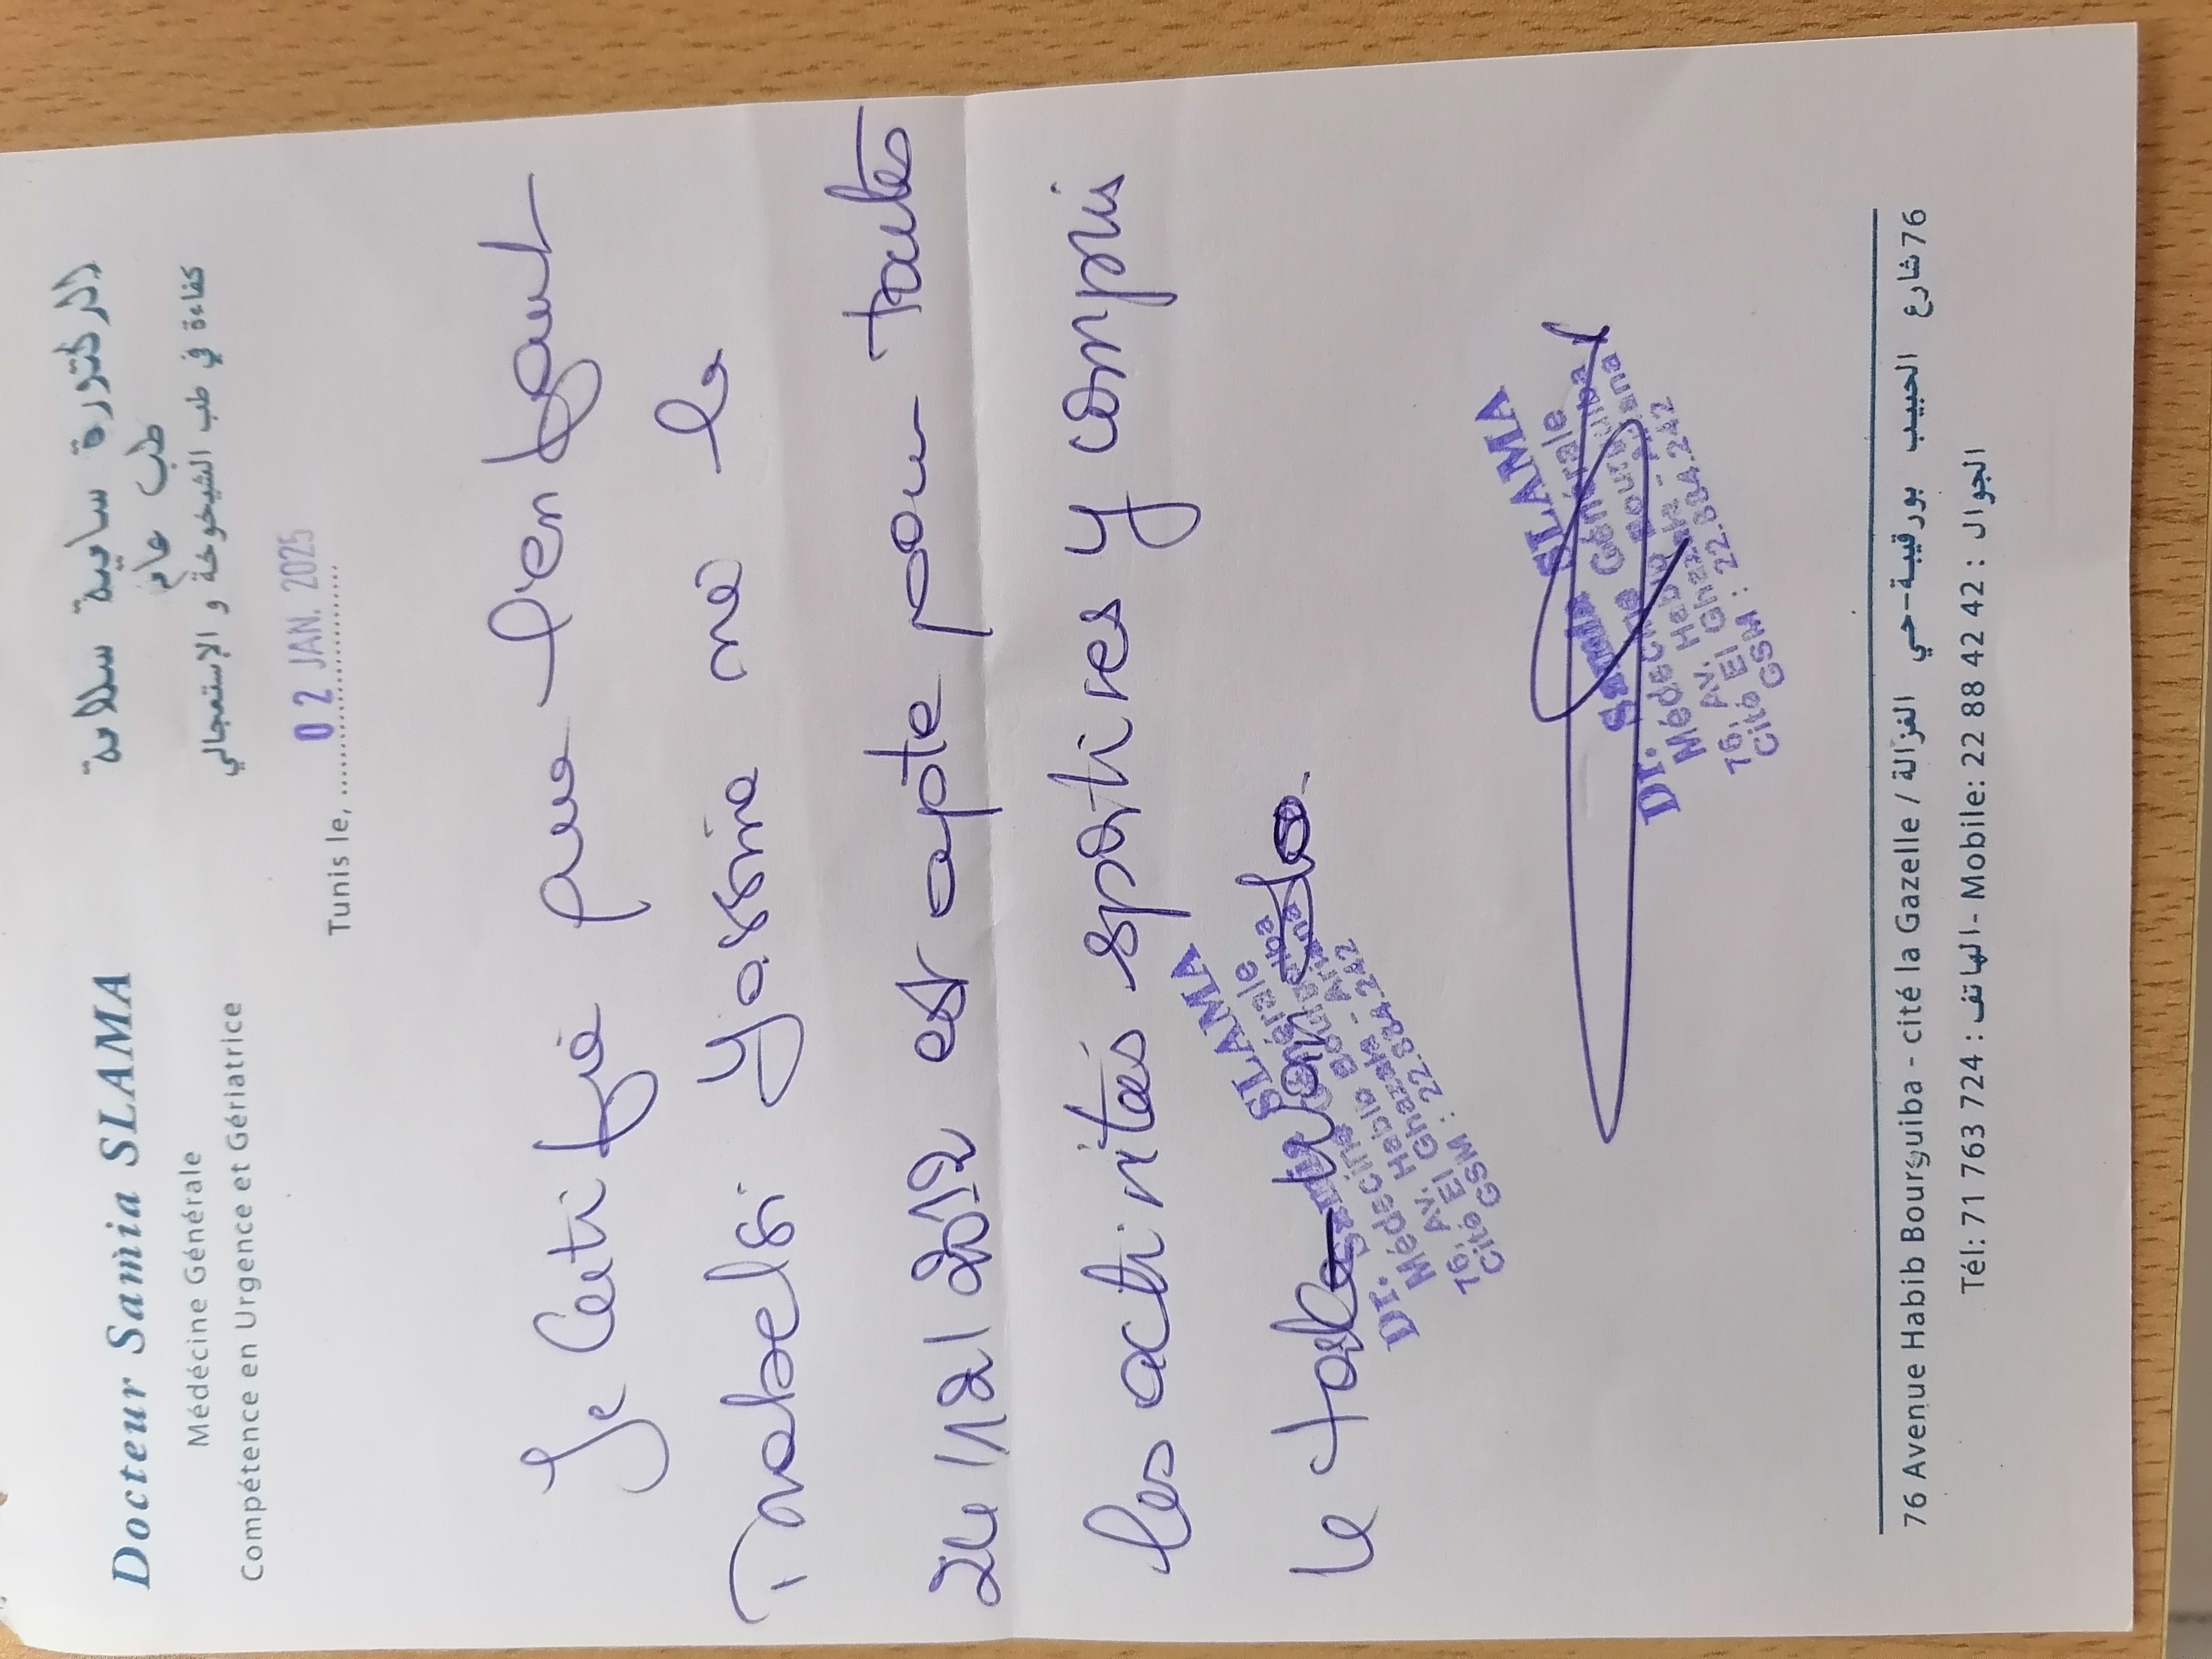 Docteur Samia SLAMA
Médécine Générale
Compétence en Urgence et Gériatrice
الدكتورة سامية سلامة
طب عام
كفاءة في طب الشيخوخة و الإستعجالي
Tunis le, 02 JAN. 2025
Je Certifie que l'enfant
Trabelsi Yassine né le
24/12/2012 est apte pour toutes
les activités sportives y compris
le taekwondo.
Dr. Samia SLAMA
Médescine Générale
76, Av. Habib Bourguiba
Cité El Ghazala - Ariana
GSM : 22.884.242
Dr. Samia SLAMA
Médescine Générale
76, Av. Habib Bourguiba
Cité El Ghazala - Ariana
GSM : 22.884.242
76 Avenue Habib Bourguiba - cité la Gazelle / 76 شارع الحبيب بورقيبة-حي الغزالة
Tél: 71 763 724 : الهاتف - Mobile: 22 88 42 42 : الجوال